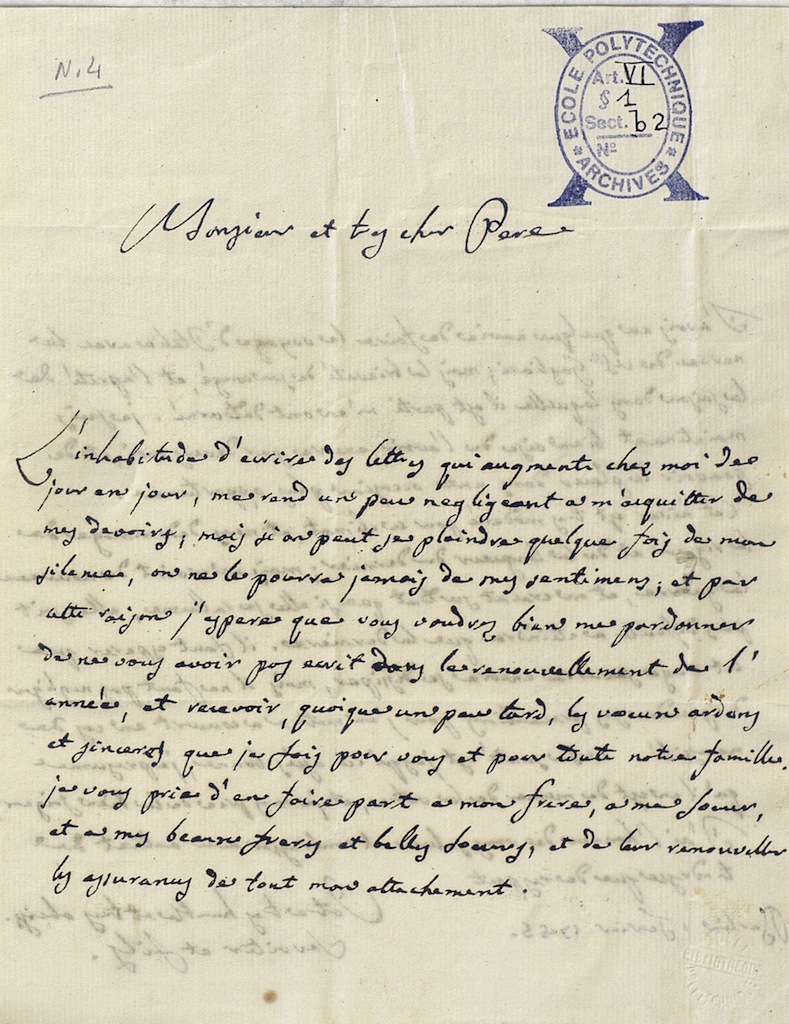 N.4
ECOLE POLYTECHNIQUE
* ARCHIVES *
Art. VI
§ 1
Sect. b 2
N°
Monsieur et tres cher Pere
L'inhabitude d'ecrire des lettres qui augmente chez moi de
jour en jour, me rend un peu negligeant a m'acquitter de
mes devoirs; mais si on peut se plaindre quelque fois de mon
silence, on ne le pourra jamais de mes sentimens; et par
cette raison j'espere que vous voudrez bien me pardonner
de ne vous avoir pas ecrit dans le renouvellement de l'
année, et recevoir, quoique un peu tard, les voeux ardens
et sinceres que je fais pour vous et pour toute notre famille.
je vous prie d'en faire part a mon frere, a ma soeur,
et a mes beaux freres et belles soeurs, et de leur renouveller
les assurances de tout mon attachement.